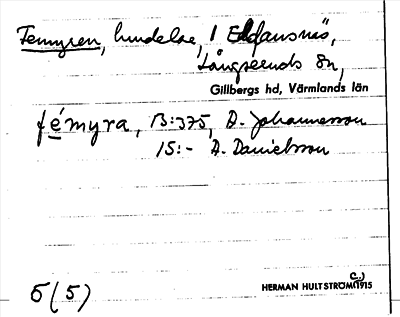 Femyren, lundelar, 1 Eldfansnäs,
Långseruds sn,
Gillbergs hd, Värmlands län
fémyra, B:375, A. Johannesson
15:- A. Danielsson
5(5)
HERMAN HULTSTRÖM 1915